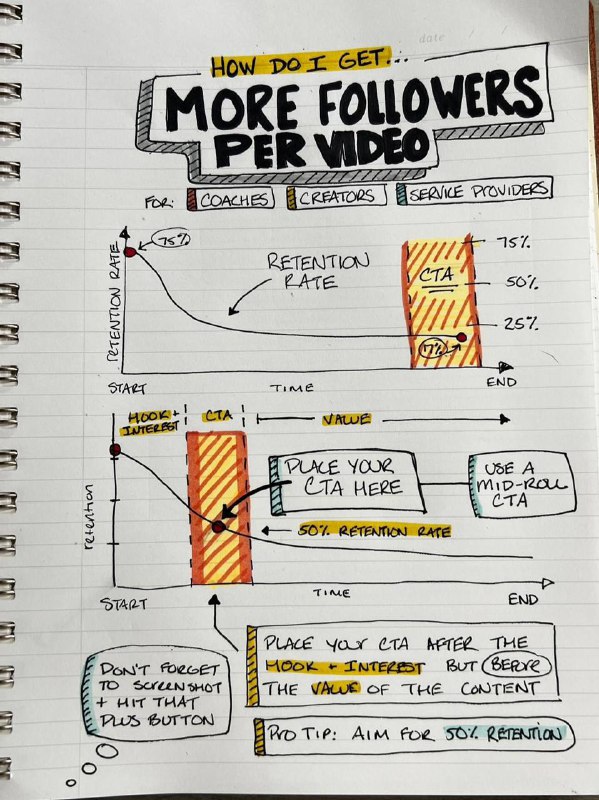 date
HOW DO I GET...
MORE FOLLOWERS
PER VIDEO
FOR: COACHES CREATORS SERVICE PROVIDERS
RETENTION RATE
75%
RETENTION
RATE
CTA
75%
50%
25%
17%
START TIME END
HOOK +
INTEREST
CTA
VALUE
retention
PLACE YOUR
CTA HERE
USE A
MID-ROLL
CTA
50% RETENTION RATE
START TIME END
DON'T FORGET
TO SCREENSHOT
+ HIT THAT
PLUS BUTTON
PLACE YOUR CTA AFTER THE
HOOK + INTEREST BUT BEFORE
THE VALUE OF THE CONTENT
PRO TIP: AIM FOR 50% RETENTION